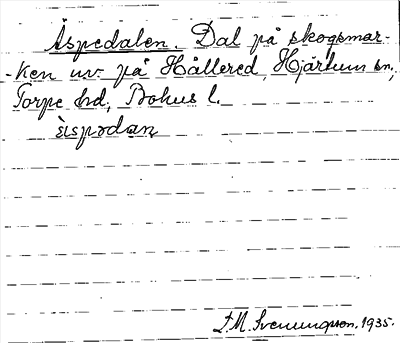 Äspedalen. Dal på skogsmar-
-ken uv på Hållered, Hjärtum sn,
Torpe hd, Bohus l.
ä̀ispədan
T.M. Svenungsson, 1935.